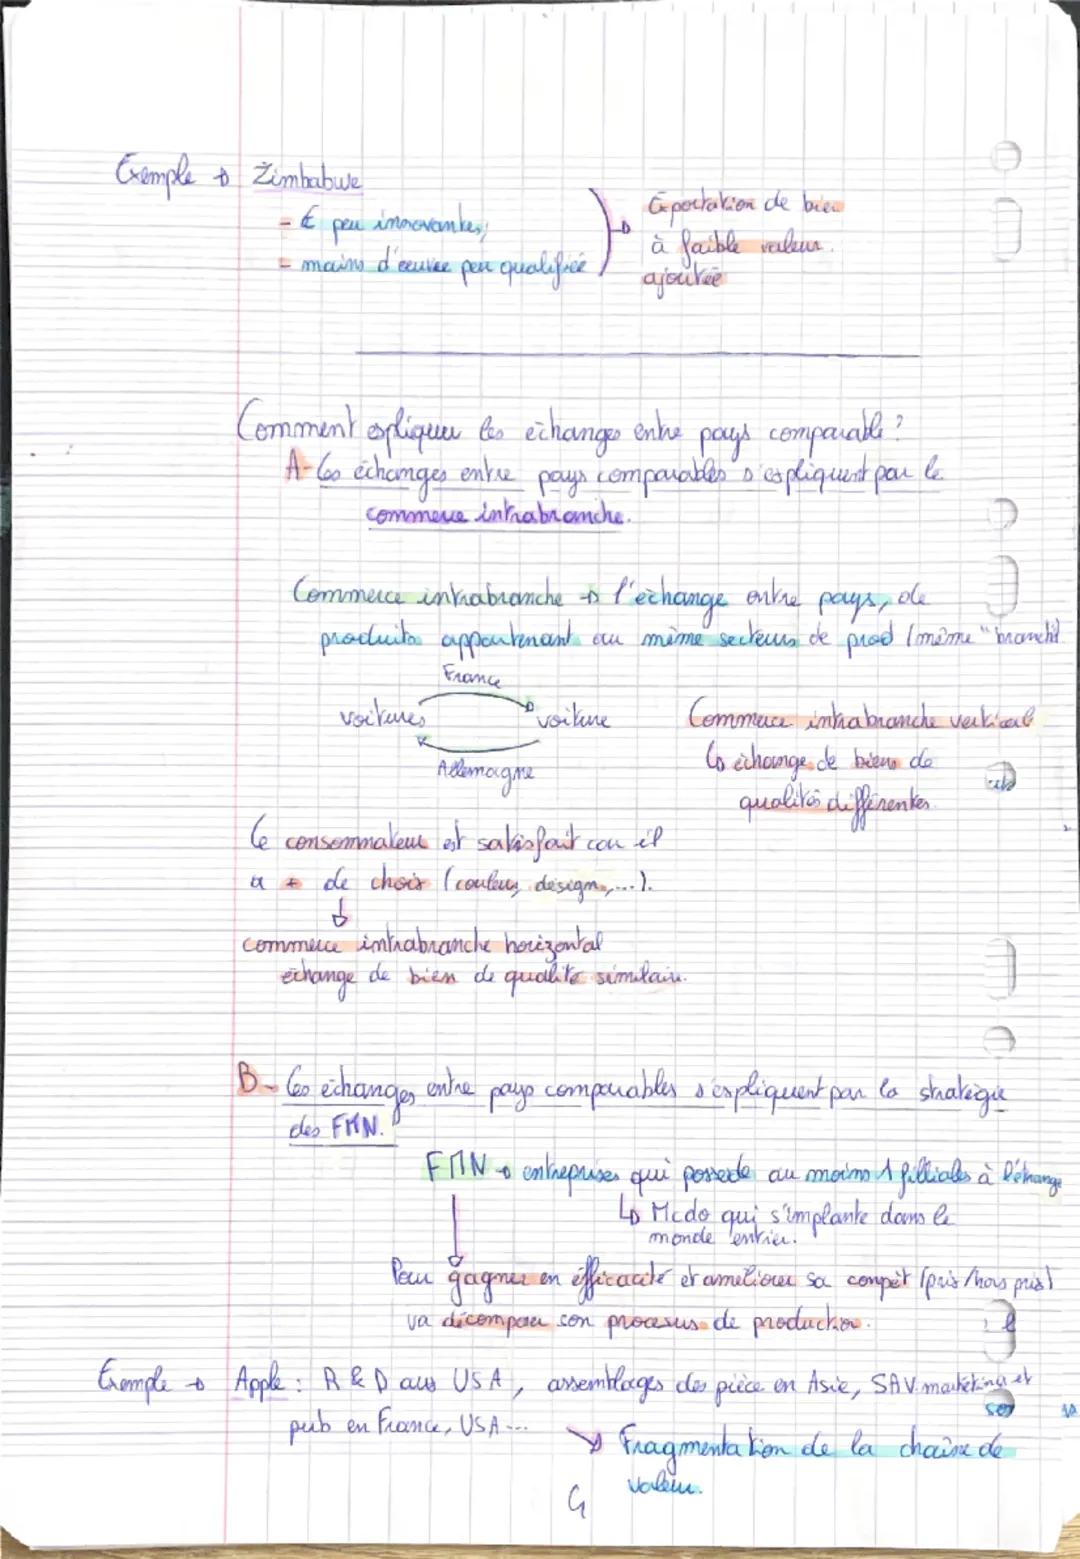 Exemple → Zimbabwe
- E peu innovantes,
- mains d'œuvre peu qualifiée
Exportation de bien
à faible valeur
ajoutée
Comment expliquer les échanges entre pays comparable ?
A- Les échanges entre pays comparables s'expliquent par le
commerce intrabranche.
Commerce intrabranche → l'échange entre pays, de
produits appartenant au même secteurs de prod (même "branche"
France
voitures voiture
Allemagne
Commerce intrabranche vertical
↳ échange de biens de
qualités différentes
Le consommateur est satisfait car il
a + de choix (couleur, design, ...).
↓
commerce intrabranche horizontal
échange de bien de qualité similaire.
B- Les échanges entre pays comparables s'expliquent par la stratégie
des FMN.
FMN → entreprises qui possede au moins 1 filliales à l'étrange
↳ Mcdo qui s'implante dans le
monde entier.
Pour gagner en efficacité et améliorer sa compét (prix/hors prix)
va décomposer son processus de production.
Exemple → Apple : R & D aux USA, assemblages des pièce en Asie, SAV. marketing et
pub en France, USA ...
↘ Fragmentation de la chaîne de
valeur.